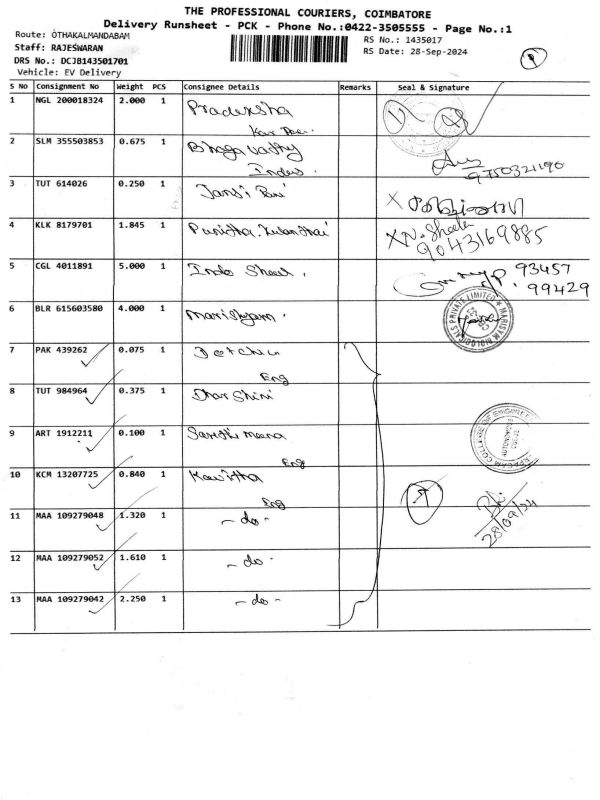 THE PROFESSIONAL COURIERS, COIMBATORE
Delivery Runsheet - PCK - Phone No.:0422-3505555 - Page No.:1
Route: OTHAKALMANDABAM
Staff: RAJESWARAN
DRS No.: DCJB143501701
Vehicle: EV Delivery
RS No.: 1435017
RS Date: 28-Sep-2024
S No Consignment No Weight PCS Consignee Details Remarks Seal & Signature
1 NGL 200018324 2.000 1
2 SLM 355503853 0.675 1 Bhagavathy
Indus.
9750321190
3 TUT 614026 0.250 1 Jansi Rani
4 KLK 8179701 1.845 1 Punitha. X N. Sheela
9043169885
5 CGL 4011891 5.000 1 Indo Sheet. 93457
99429
6 BLR 615603580 4.000 1 PRIVATE LIMITED
7 PAK 439262 0.075 1
Eng
8 TUT 984964 0.375 1 Dharshini
9 ART 1912211 0.100 1 Meena
Eng
10 KCM 13207725 0.840 1 Kavitha
Eng
11 MAA 109279048 1.320 1 - do -
28/09/24
12 MAA 109279052 1.610 1 - do -
13 MAA 109279042 2.250 1 - do -